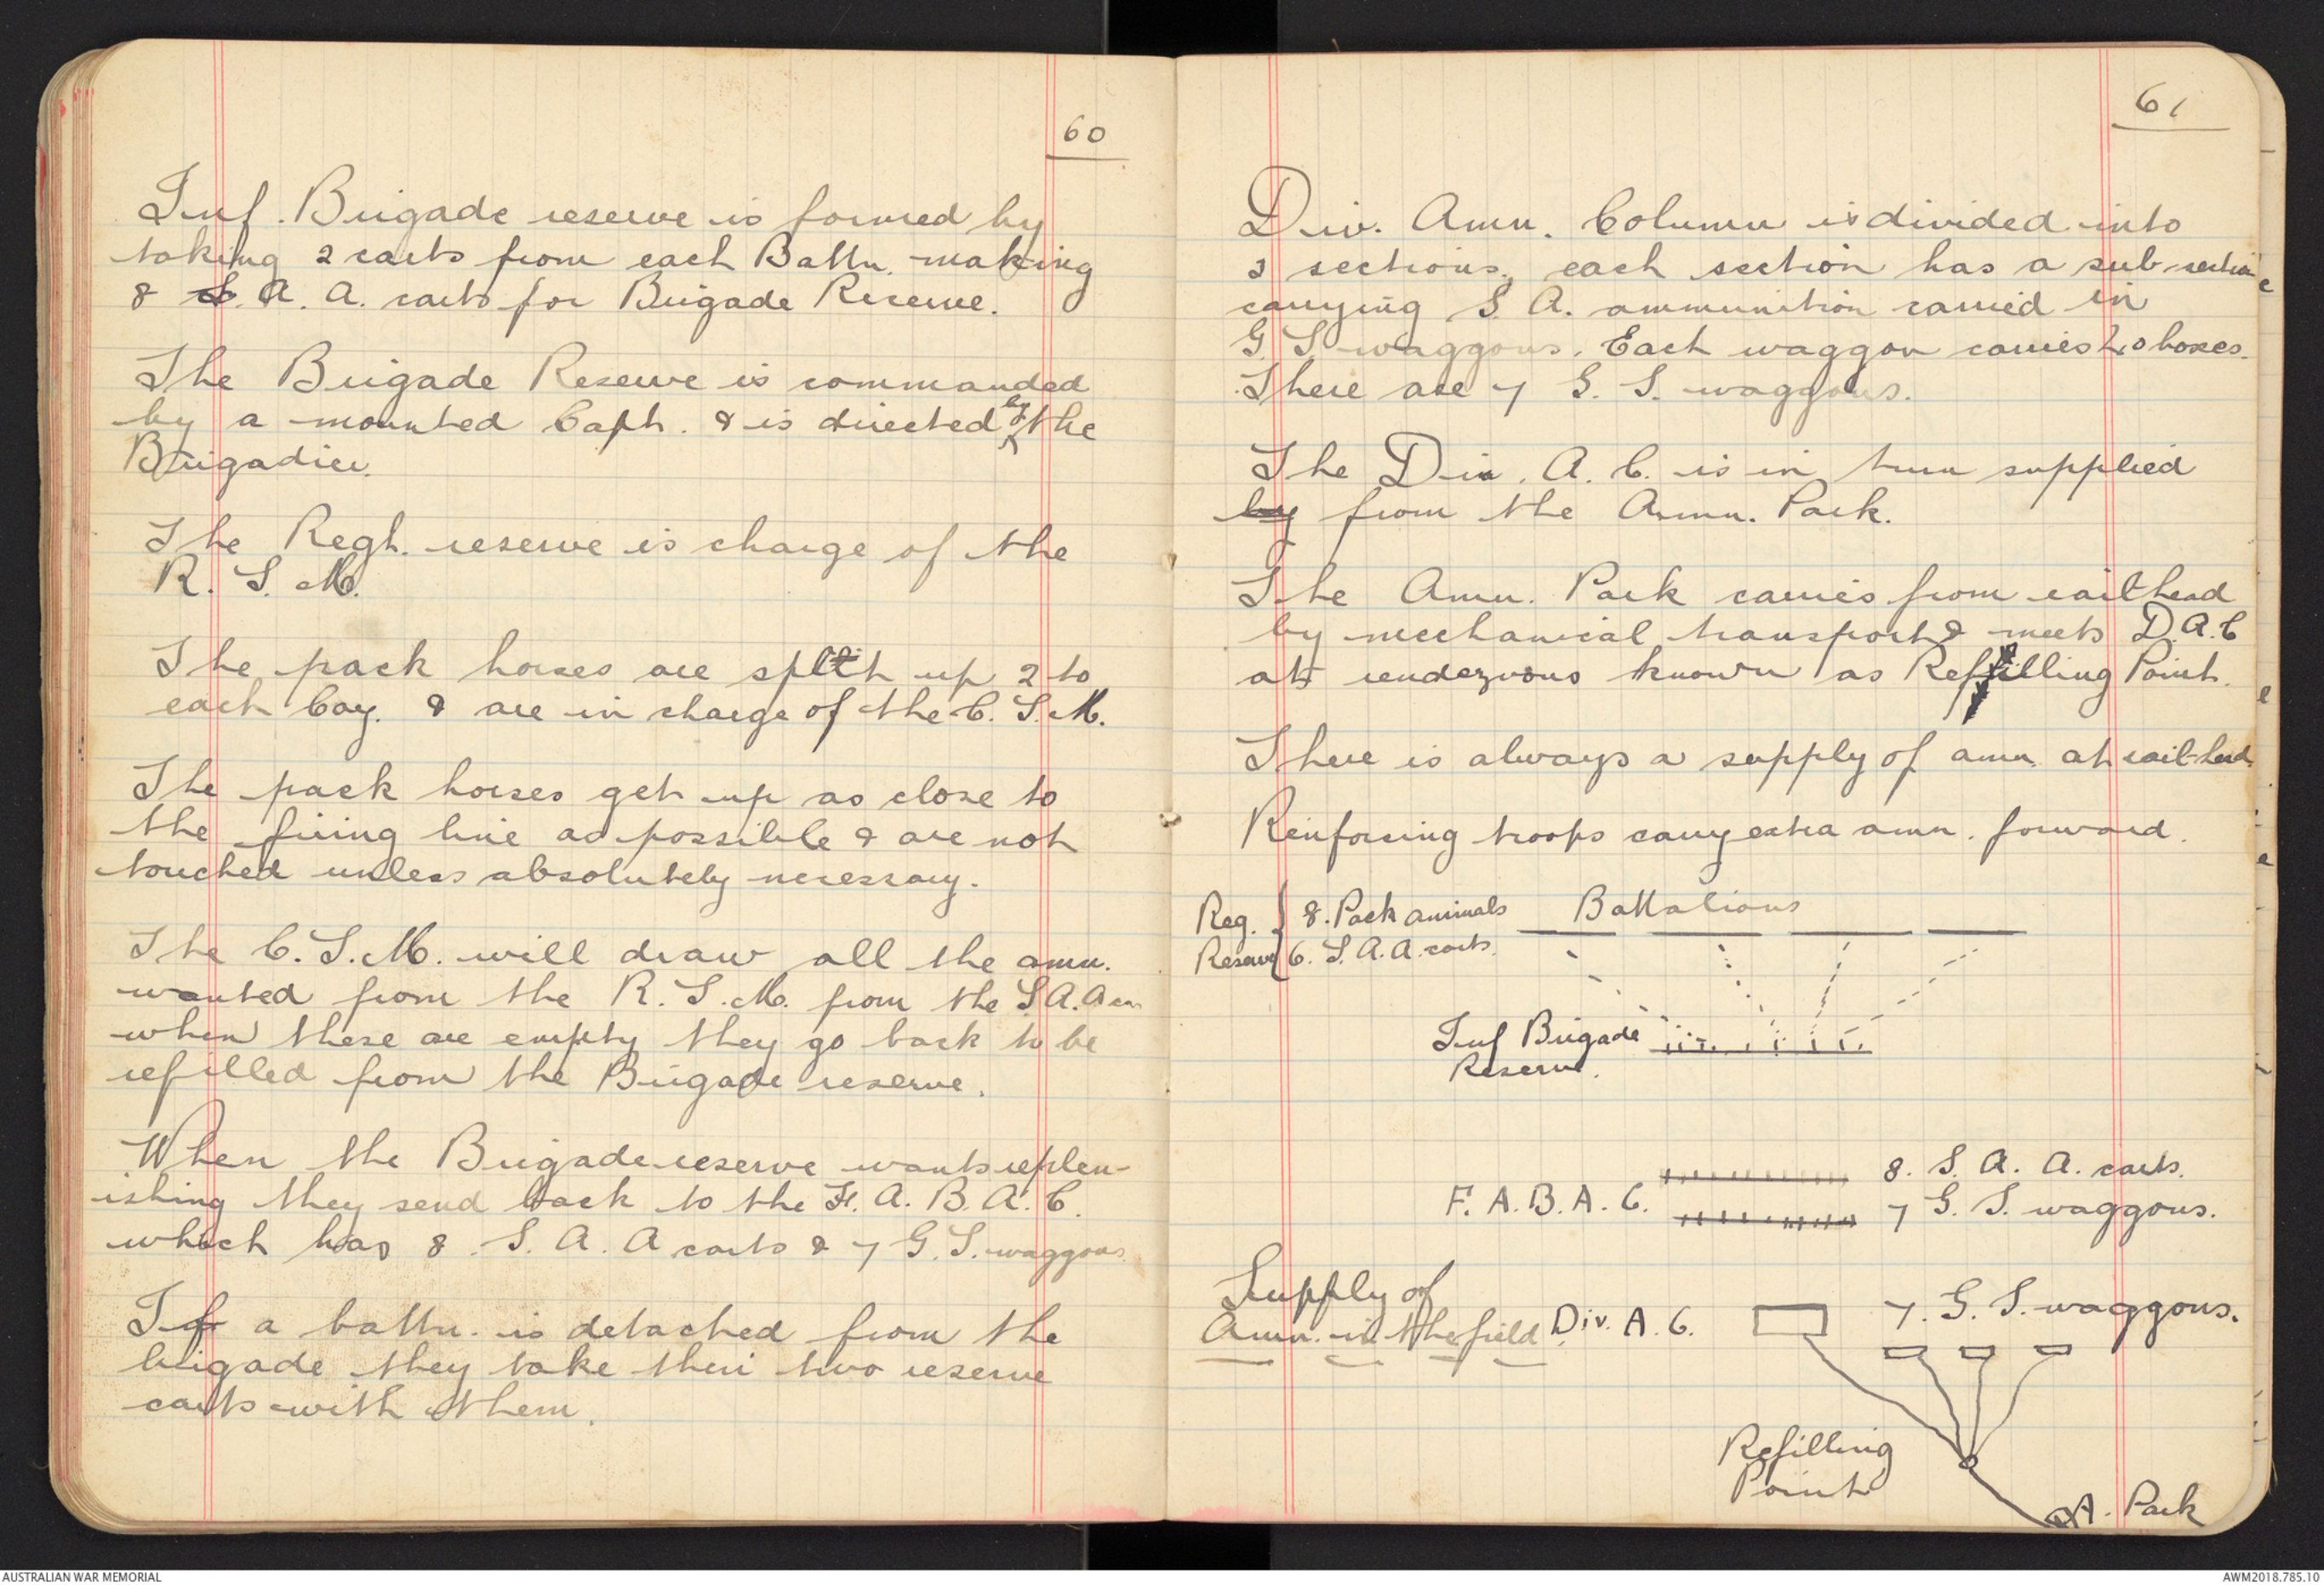 60
Inf. Brigade reserve is formed by
taking 2 carts from each Battn. making
8 S. A. A. carts for Brigade Reserve.
The Brigade Reserve is commanded
by a mounted Capt. & is directed by the
Brigadier.
The Regt. reserve is charge of the
R. S. M.
The pack horses are split up 2 to
each Coy. & are in charge of the C. S. M.
The pack horses get up as close to
the firing line as possible & are not
touched unless absolutely necessary.
The C. S. M. will draw all the amn.
wanted from the R. S. M. from the S A. A
when these are empty they go back to be
refilled from the Brigade reserve.
When the Brigade reserve wants replen-
ishing they send back to the F. A. B. A. C.
which has 8 S. A. A carts & 7 G. S. waggons
If a battn. is detached from the
brigade they take their two reserve
carts with them.
61
Div. Amn. Column is divided into
3 sections, each section has a sub-section
carrying S. A. ammunition carried in
G. S. waggons. Each waggon carries boxes.
There are 7 G. S. waggons.
The Div. A. C. is in turn supplied
by from the Amn. Park.
The Amn. Park carries from railhead
by mechanical transport & meets D. A. C
at rendezvous known as Refilling Point.
There is always a supply of amn. at rail-head
Reinforcing troops carry extra amn. forward.
Reg. 8. Pack animals Battalions
Reserve 6. S. A. A. carts.
Inf Brigade
Reserve.
8. S. A. A. carts.
F. A. B. A. C. 7 G. S. waggons.
Supply of
Amn. in the field Div. A. C. 7. G. S. waggons.
Refilling
Point
A. Park
AUSTRALIAN WAR MEMORIAL
AWM2018.785.10